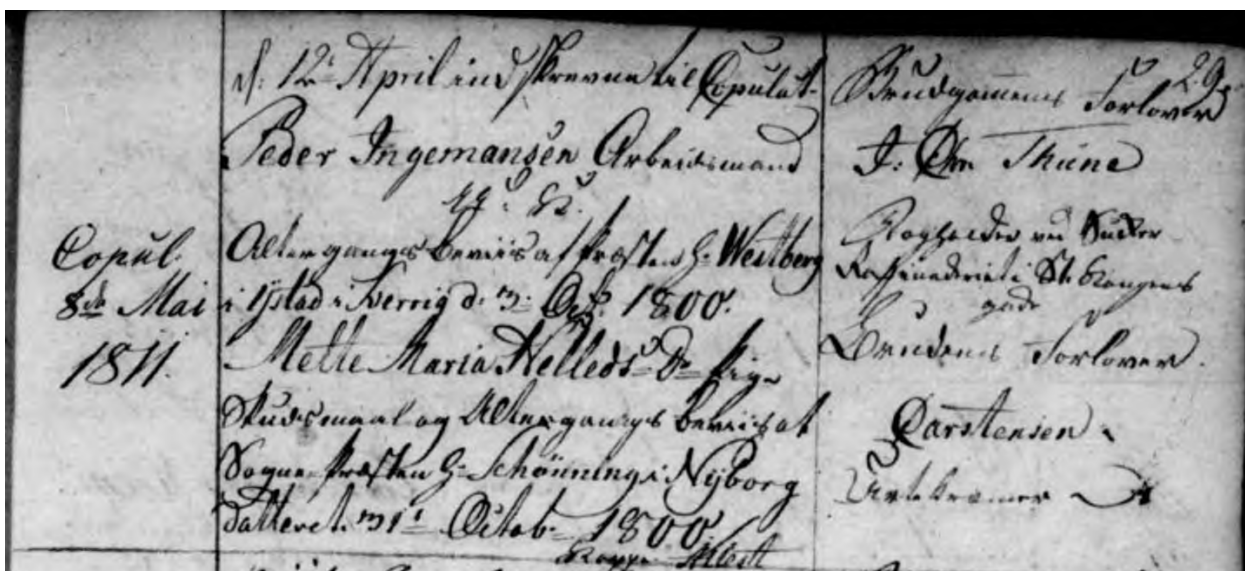 Copul.
8de Mai
1811.
d: 12te April indskrevne til Copulat-
Peder Ingemansen Arbeidsmand
Altergangs Beviis af Præsten H: Westberg
i Ystad i Sverrig d: 3: Oct: 1800.
Mette Maria Nelleds D= Pige
Skudsmaal og Altergangs Beviis at
Sogne Præsten H: Schönning i Nyborg
datteret 31te Octob= 1800.
29
Brudgommens Forlover
J: Chr Thüne
ved Sucker
Raffinaderiet i St: Kongens
gade
Brudens Forlover.
Carstensen
Urtekræmer